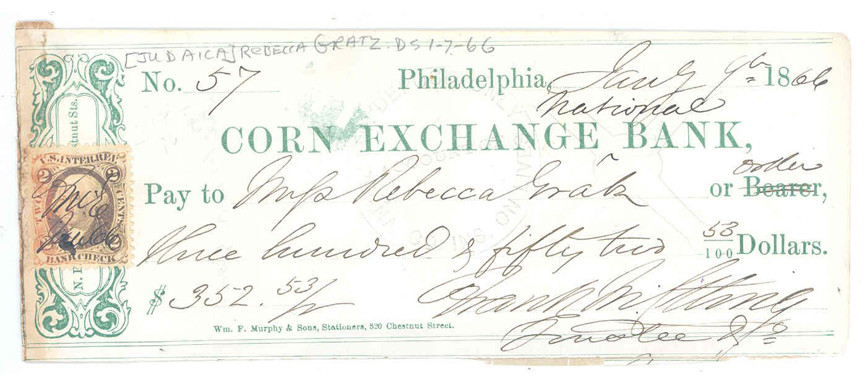 [JUDAICA] REBECCA GRATZ. DS 1-7-66
No. 57 Philadelphia, Jany 9th 1866
National
CORN EXCHANGE BANK,
order
Pay to Miss Rebecca Gratz or Bearer,
three hundred & fifty two 53/100 Dollars.
$352.53/
Frank M.
Trustee &c
Wm. F. Murphy & Sons, Stationers, 320 Chestnut Street.
U.S. INTER. REV.
2 2
TWO CENTS
2 2
BANK CHECK